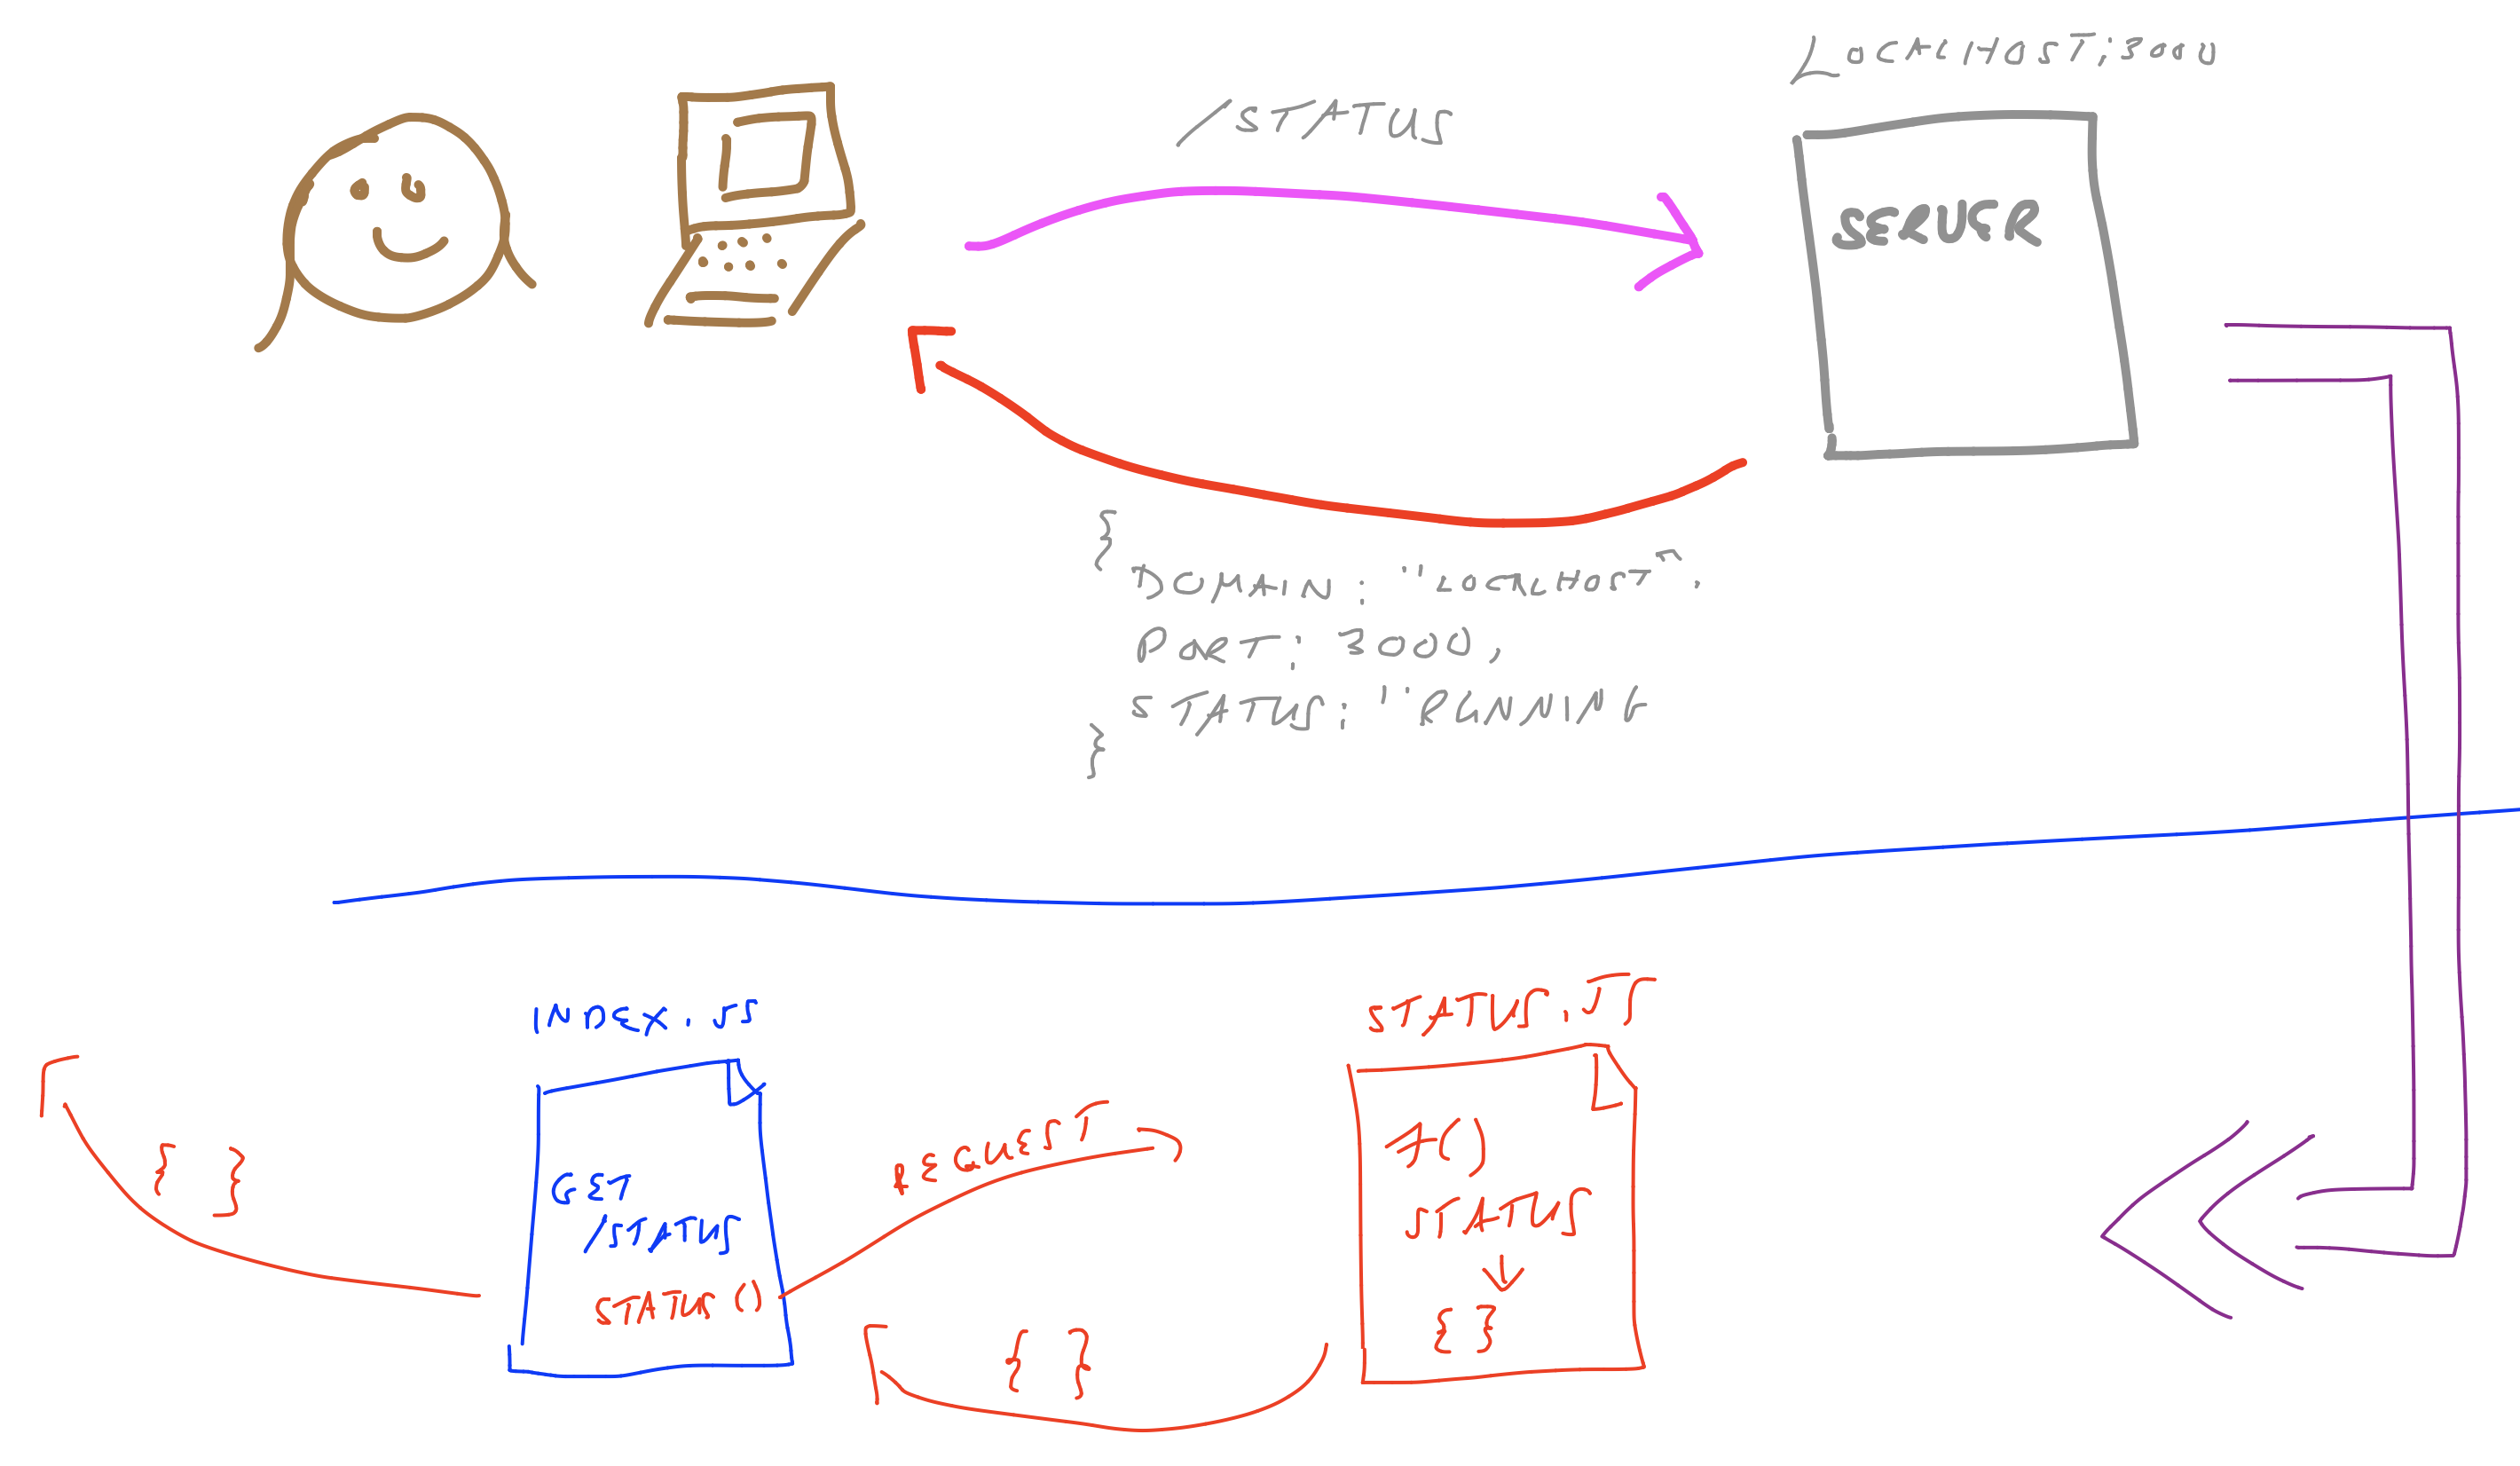 LOCALHOST:3000
/STATUS
SERVER
{
DOMAIN: "LOCALHOST",
PORT: 3000,
STATUS: "RUNNING
}
INDEX.JS
GET
/STATUS
STATUS()
{ }
REQUEST
{ }
STATUS.JS
F()
STATUS
{}